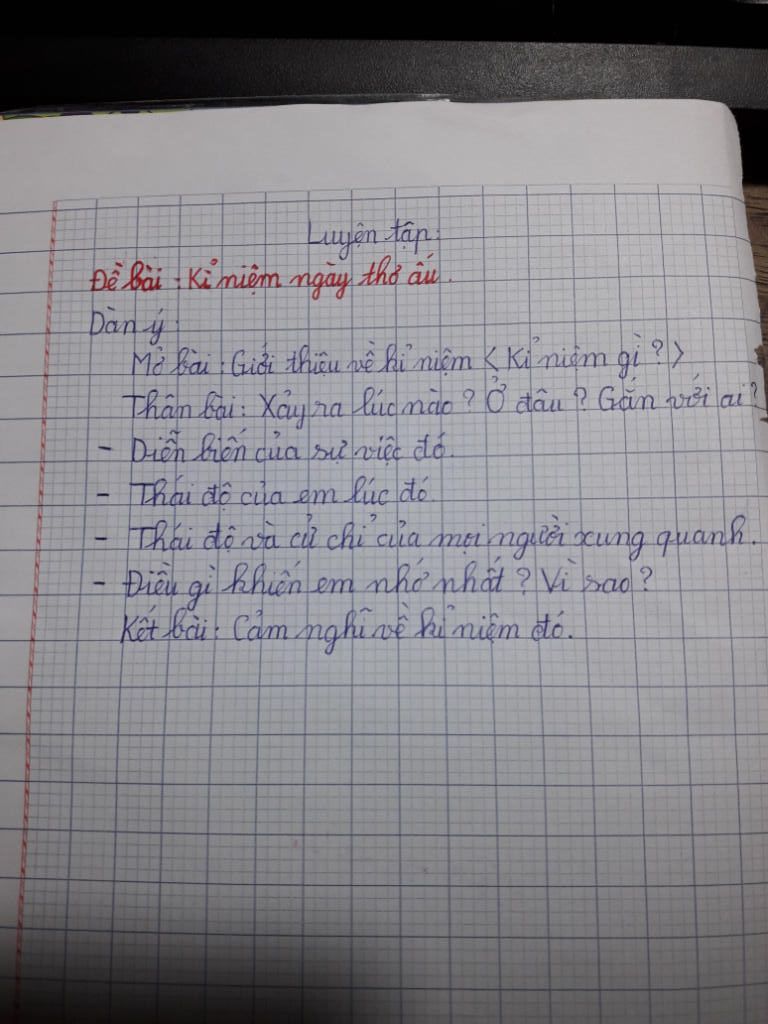 Luyện tập:
Đề bài: Kỉ niệm ngày thơ ấu.
Dàn ý:
Mở bài: Giới thiệu về kỉ niệm <Kỉ niệm gì?>
Thân bài: Xảy ra lúc nào? Ở đâu? Gắn với ai?
- Diễn biến của sự việc đó.
- Thái độ của em lúc đó
- Thái độ và cử chỉ của mọi người xung quanh.
- Điều gì khiến em nhớ nhất? Vì sao?
Kết bài: Cảm nghĩ về kỉ niệm đó.